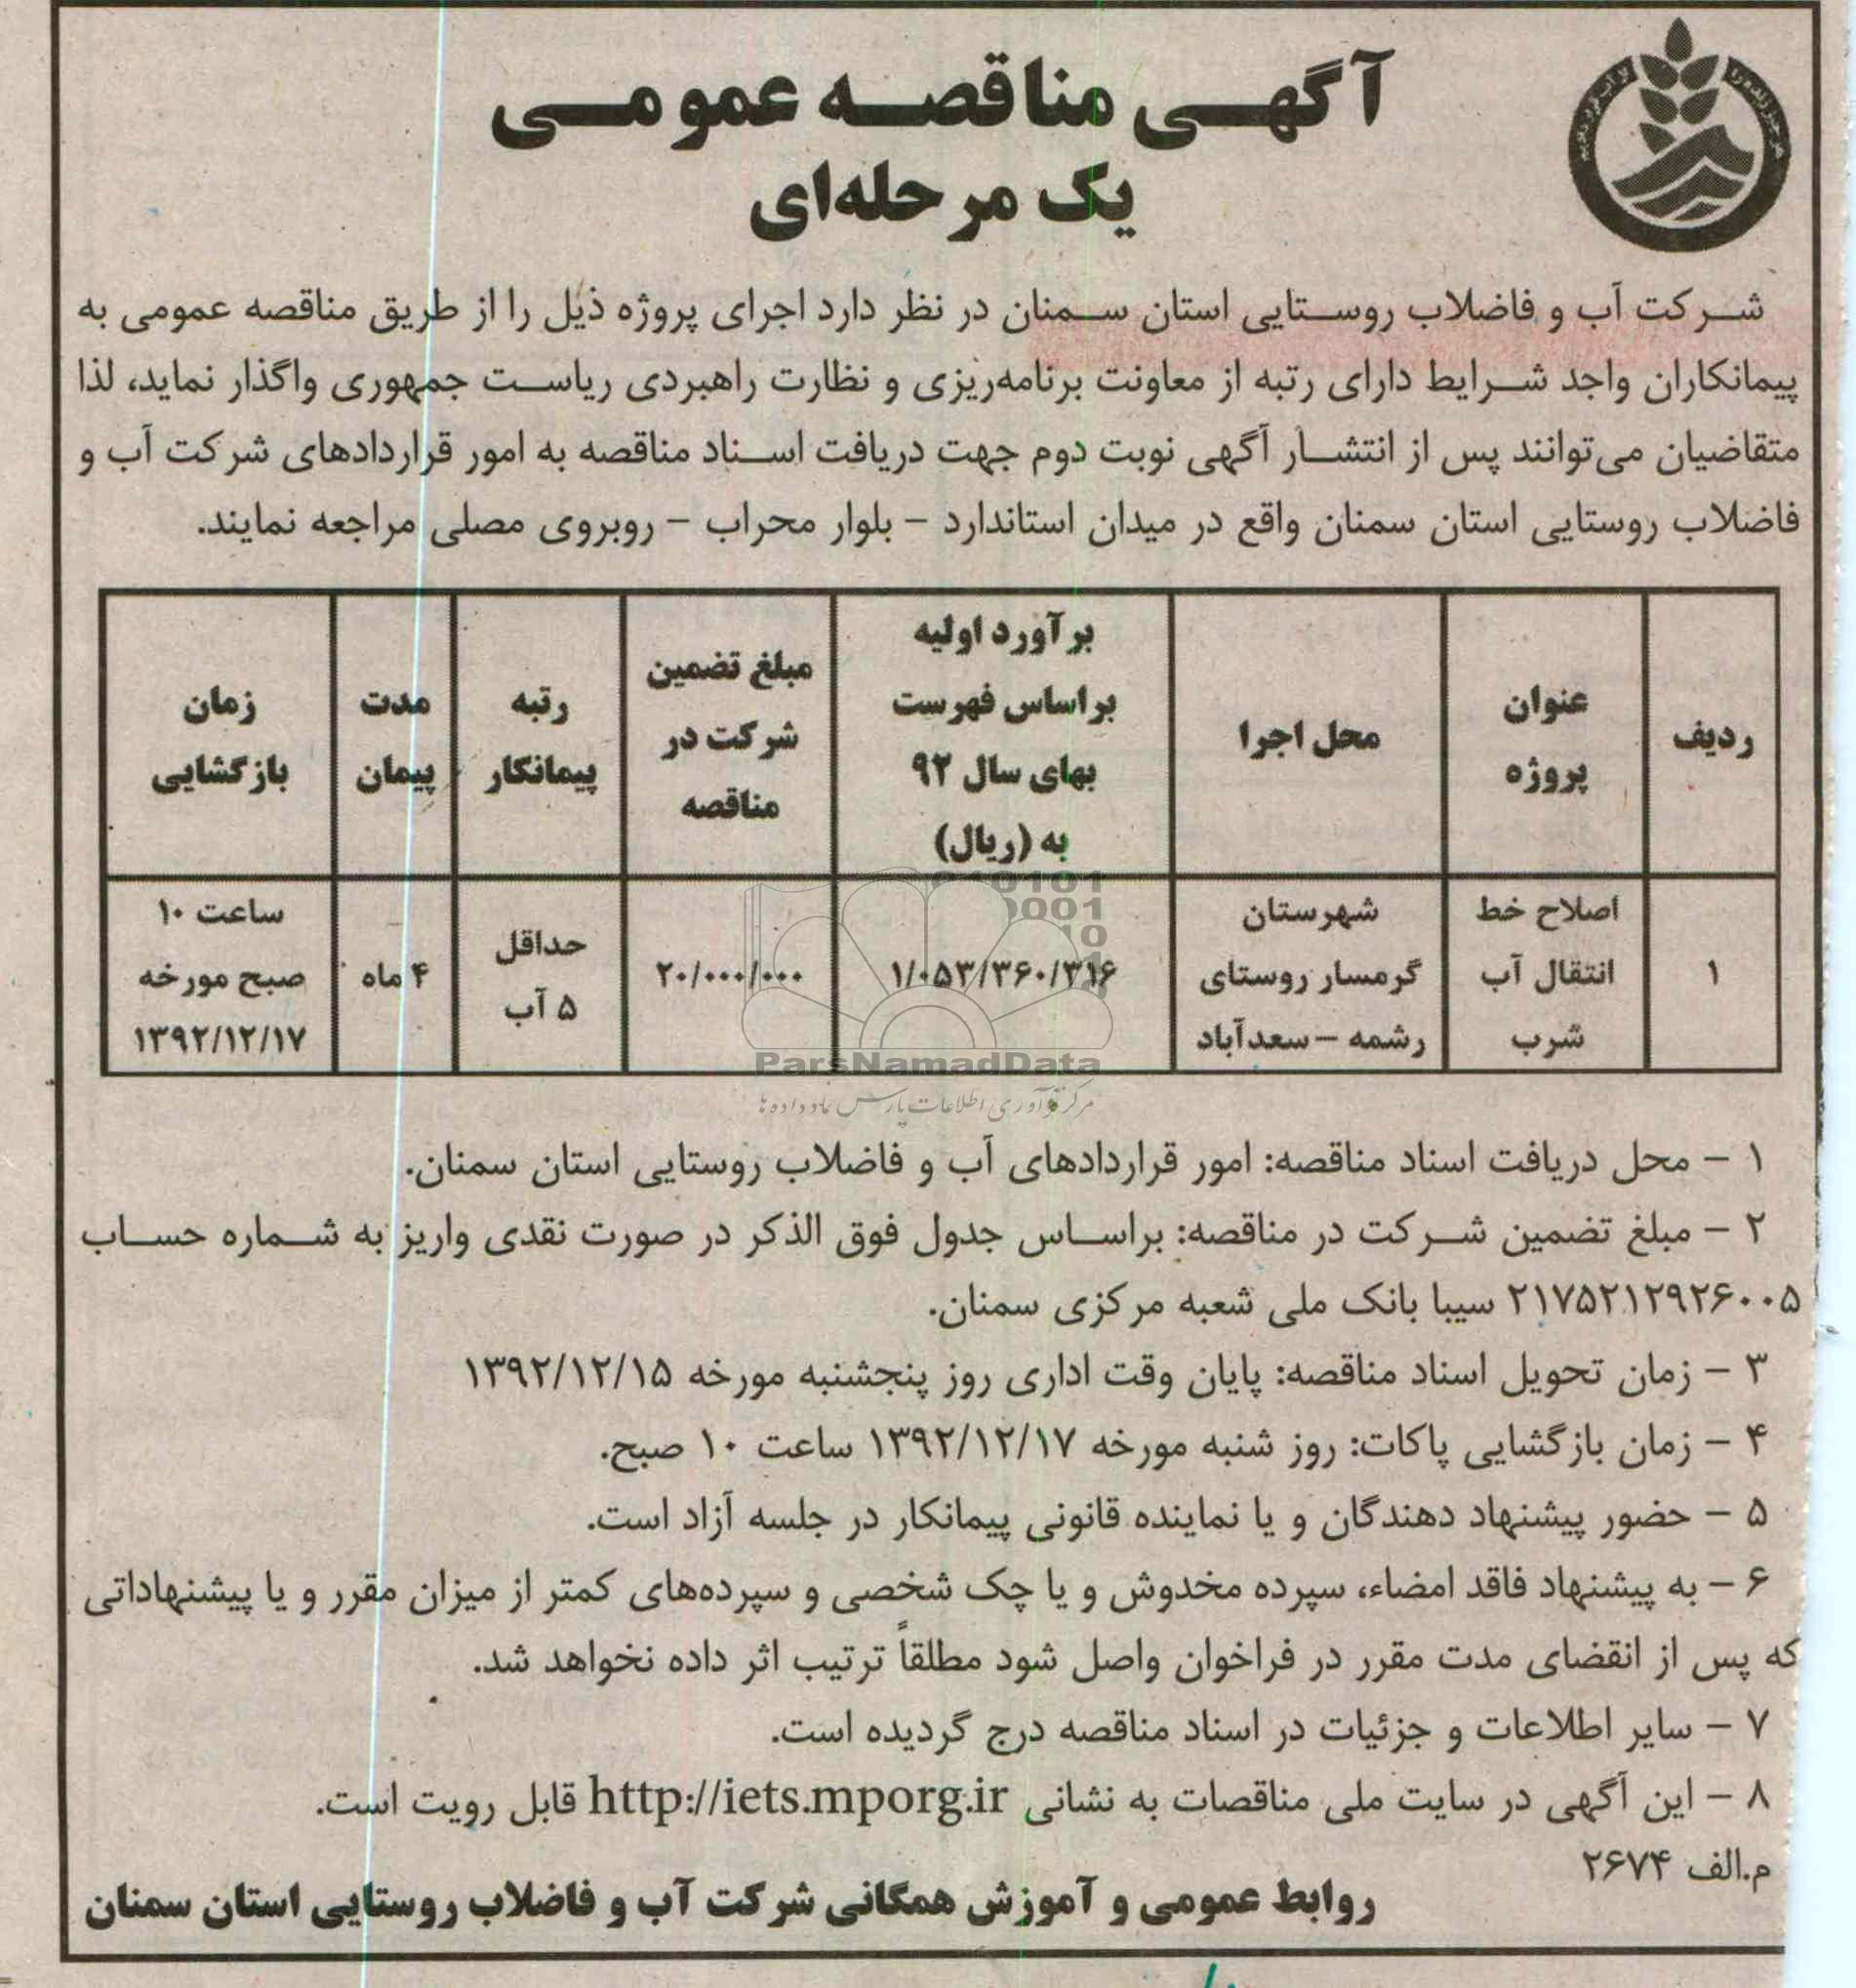 آگهی مناقصه عمومی
یک مرحله‌ای
شرکت آب و فاضلاب روستایی استان سمنان در نظر دارد اجرای پروژه ذیل را از طریق مناقصه عمومی به
پیمانکاران واجد شرایط دارای رتبه از معاونت برنامه‌ریزی و نظارت راهبردی ریاست جمهوری واگذار نماید، لذا
متقاضیان می‌توانند پس از انتشار آگهی نوبت دوم جهت دریافت اسناد مناقصه به امور قراردادهای شرکت آب و
فاضلاب روستایی استان سمنان واقع در میدان استاندارد – بلوار محراب – روبروی مصلی مراجعه نمایند.
ردیف
عنوان
پروژه
محل اجرا
برآورد اولیه
براساس فهرست
بهای سال ۹۲
به (ریال)
مبلغ تضمین
شرکت در
مناقصه
رتبه
پیمانکار
مدت
پیمان
زمان
بازگشایی
۱
اصلاح خط
انتقال آب
شرب
شهرستان
گرمسار روستای
رشمه – سعدآباد
۱/۰۵۳/۳۶۰/۳۱۶
۲۰/۰۰۰/۰۰۰
حداقل
۵ آب
۴ ماه
ساعت ۱۰
صبح مورخه
۱۳۹۲/۱۲/۱۷
ParsNamadData
مرکز فرآوری اطلاعات پارس نماد داده ها
۱ – محل دریافت اسناد مناقصه: امور قراردادهای آب و فاضلاب روستایی استان سمنان.
۲ – مبلغ تضمین شرکت در مناقصه: براساس جدول فوق الذکر در صورت نقدی واریز به شماره حساب
۲۱۷۵۲۱۲۹۲۶۰۰۵ سیبا بانک ملی شعبه مرکزی سمنان.
۳ – زمان تحویل اسناد مناقصه: پایان وقت اداری روز پنجشنبه مورخه ۱۳۹۲/۱۲/۱۵
۴ – زمان بازگشایی پاکات: روز شنبه مورخه ۱۳۹۲/۱۲/۱۷ ساعت ۱۰ صبح.
۵ – حضور پیشنهاد دهندگان و یا نماینده قانونی پیمانکار در جلسه آزاد است.
۶ – به پیشنهاد فاقد امضاء، سپرده مخدوش و یا چک شخصی و سپرده‌های کمتر از میزان مقرر و یا پیشنهاداتی
که پس از انقضای مدت مقرر در فراخوان واصل شود مطلقاً ترتیب اثر داده نخواهد شد.
۷ – سایر اطلاعات و جزئیات در اسناد مناقصه درج گردیده است.
۸ – این آگهی در سایت ملی مناقصات به نشانی http://iets.mporg.ir قابل رویت است.
م.الف ۲۶۷۴
روابط عمومی و آموزش همگانی شرکت آب و فاضلاب روستایی استان سمنان